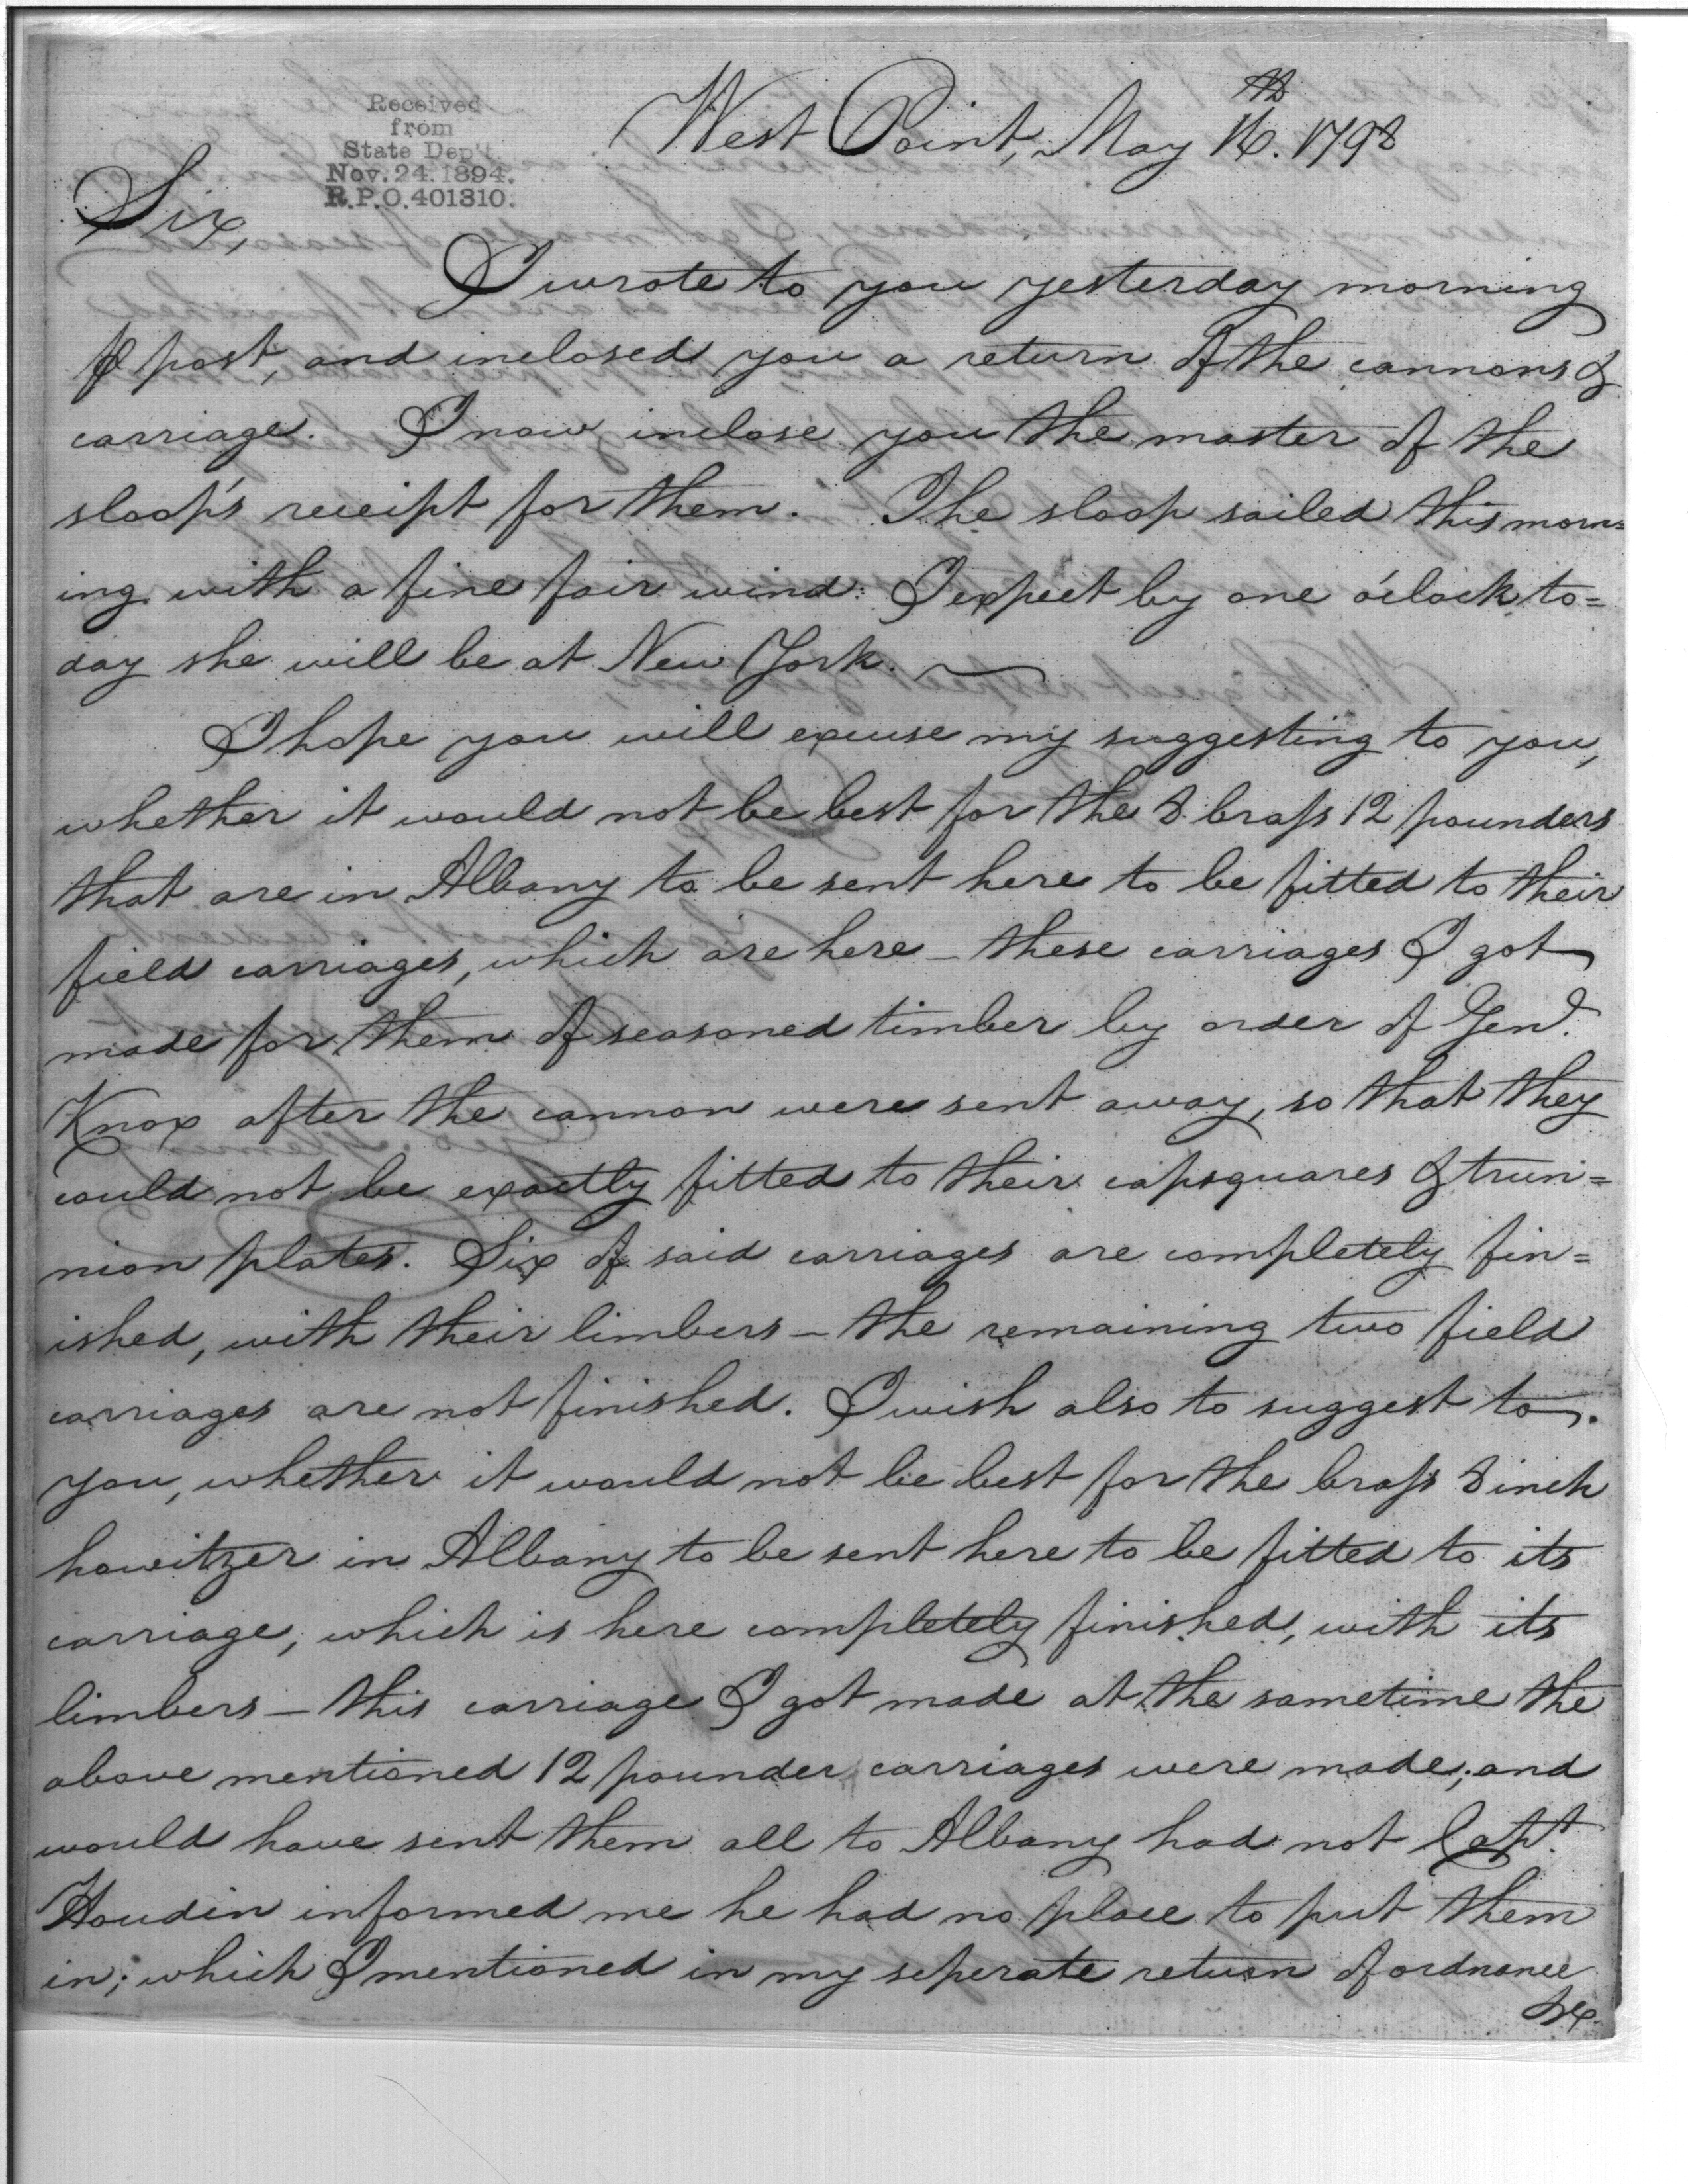 West Point, May 16th. 1798
Received
from
State Dep't.
Nov. 24. 1894.
R.P.O. 401310.
Sir,
I wrote to you yesterday morning
⅌ post, and inclosed you a return of the cannons &
carriage. I now inclose you the master of the
sloop's receipt for them. The sloop sailed this morn=
ing with a fine fair wind: I expect by one o'clock to=
day she will be at New York. ~
I hope you will excuse my suggesting to you,
whether it would not be best for the 8 braſs 12 pounders
that are in Albany to be sent here to be fitted to their
field carriages, which are here – these carriages I got
made for them of seasoned timber by order of Genl.
Knox after the cannon were sent away, so that they
could not be exactly fitted to their capsquares & trun=
nion plates. Six of said carriages are completely fin=
ished, with their limbers – the remaining two field
carriages are not finished. I wish also to suggest to
you, whether it would not be best for the braſs 8 inch
howitzer in Albany to be sent here to be fitted to its
carriage, which is here completely finished, with its
limbers – this carriage I got made at the sametime the
above mentioned 12 pounder carriages were made; and
would have sent them all to Albany had not Capt.
Houdin informed me he had no place to put them
in; which I mentioned in my seperate return of ordnance
&c.